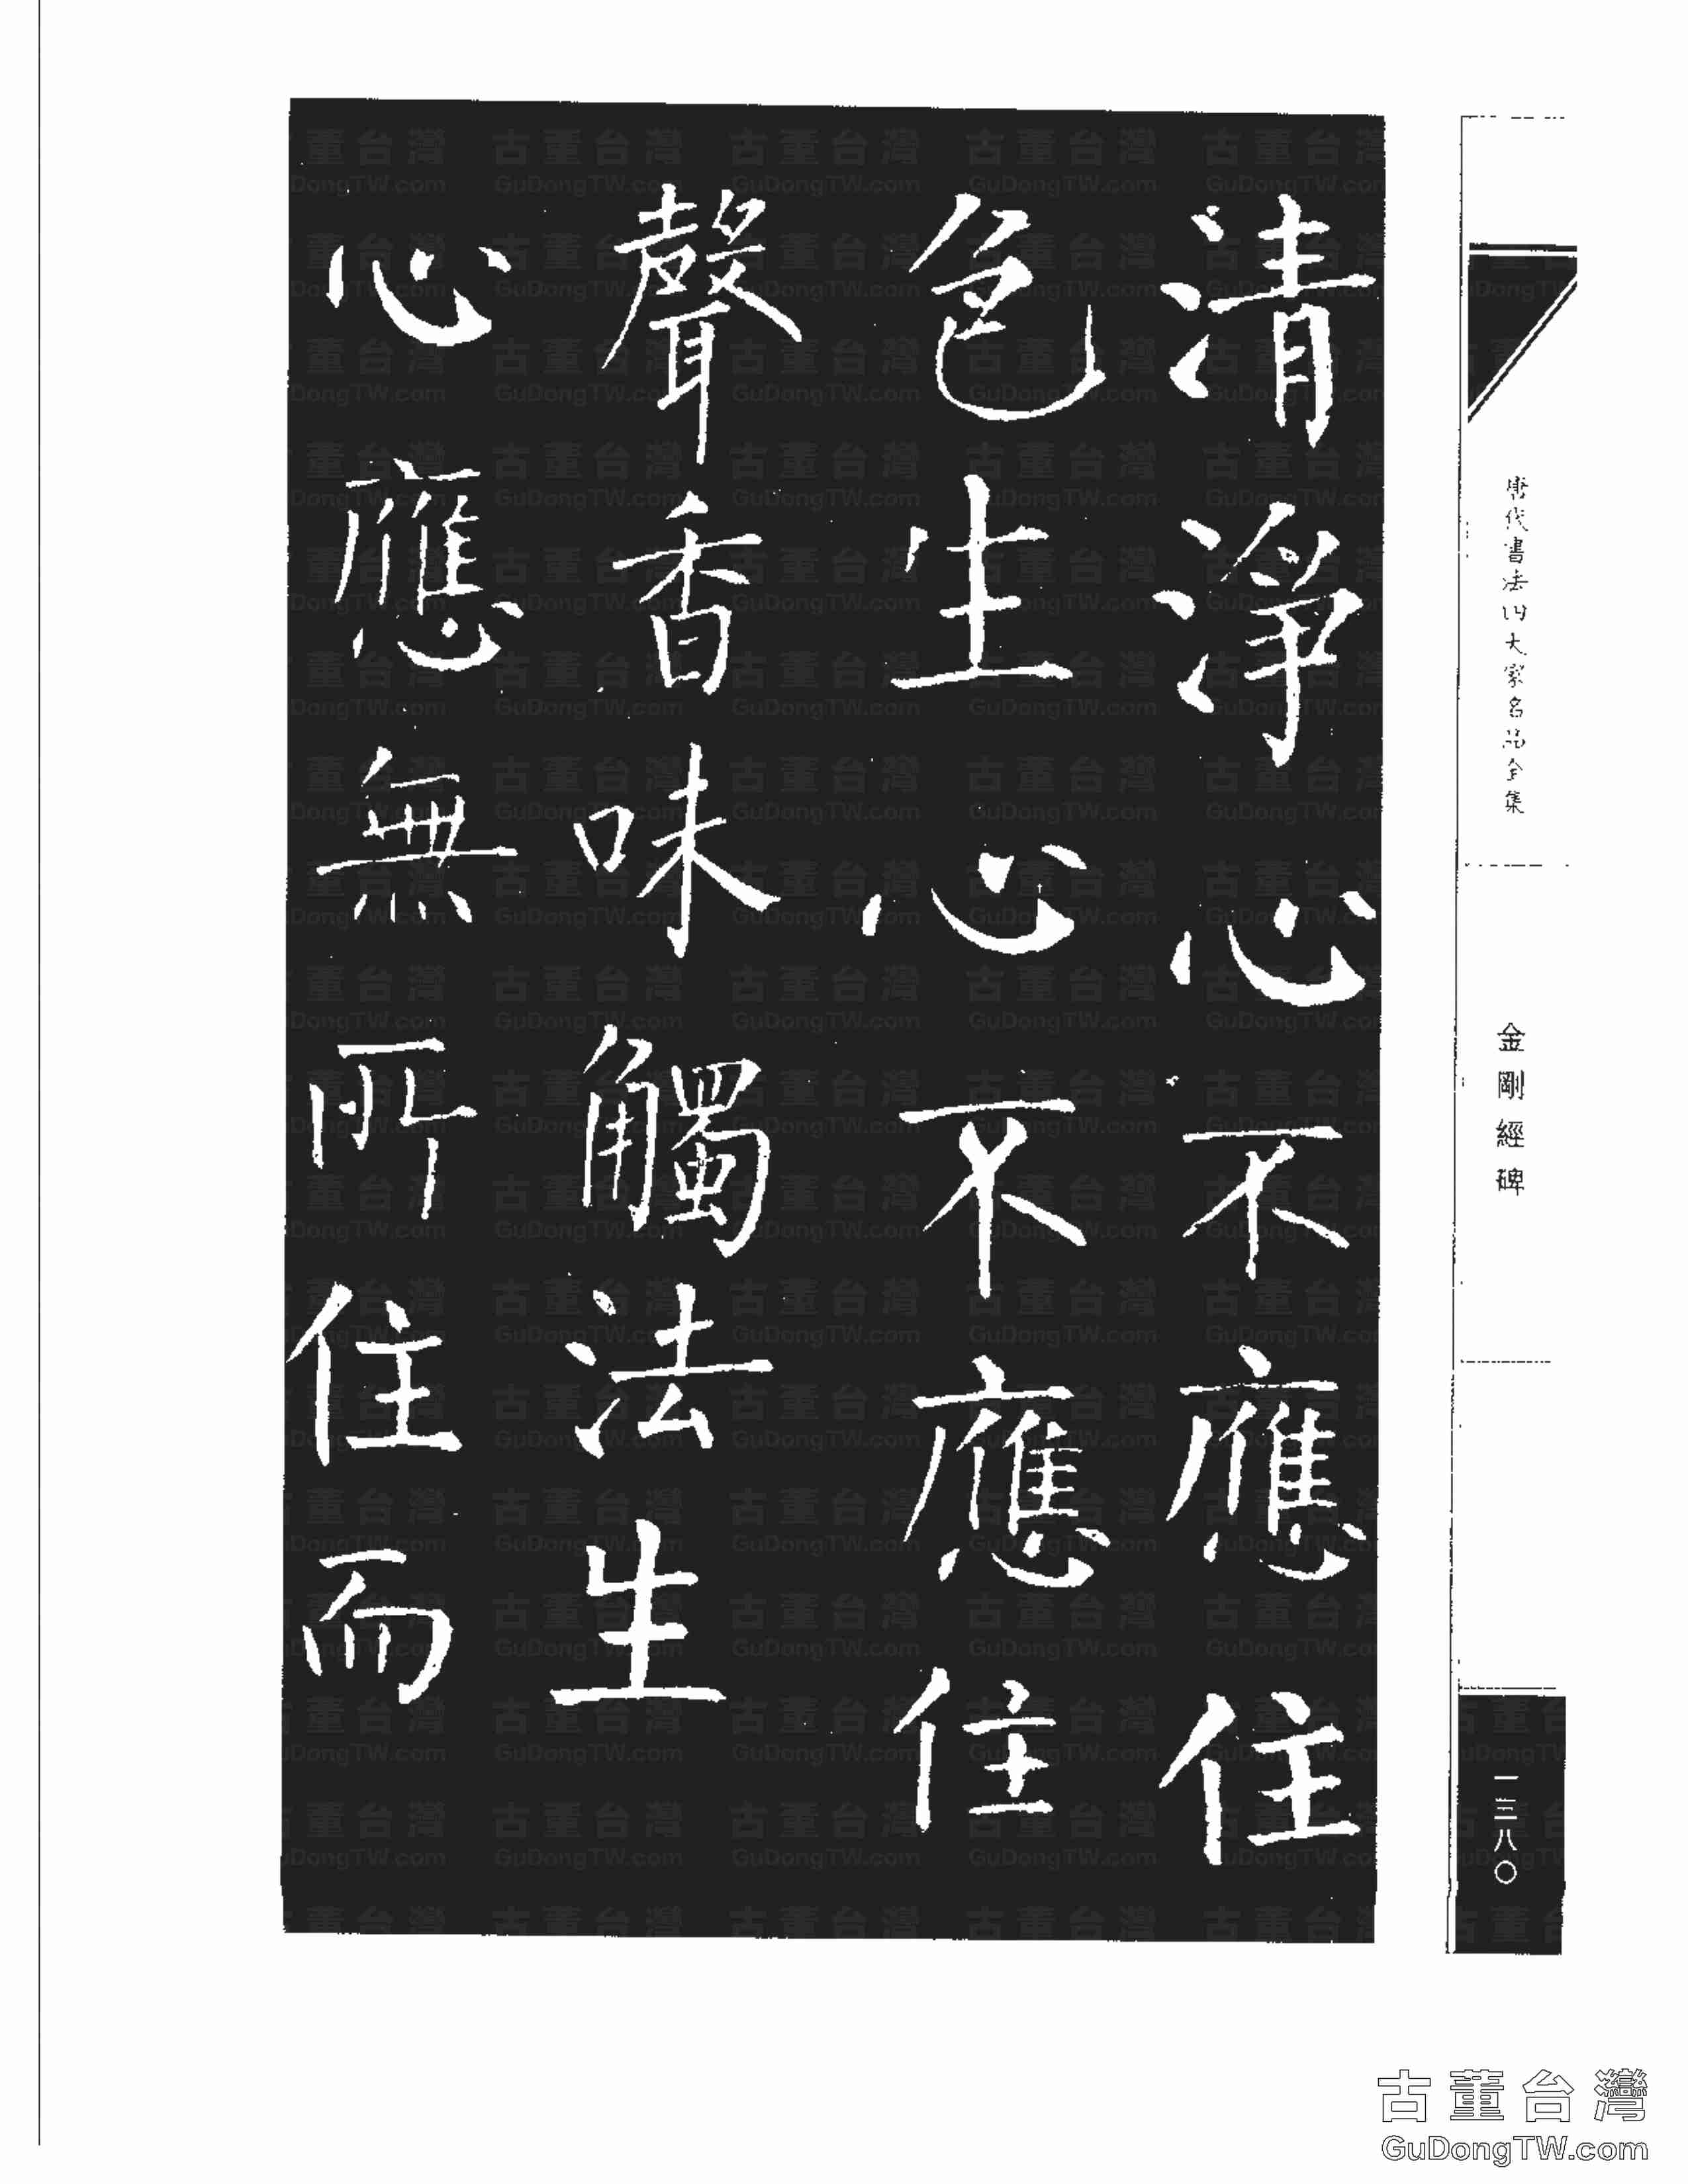 清淨心不應住
色生心不應住
聲香味觸法生
心應無所住而
唐代書法四大家名品全集
金剛經碑
一三八〇
古董台灣
GuDongTW.com